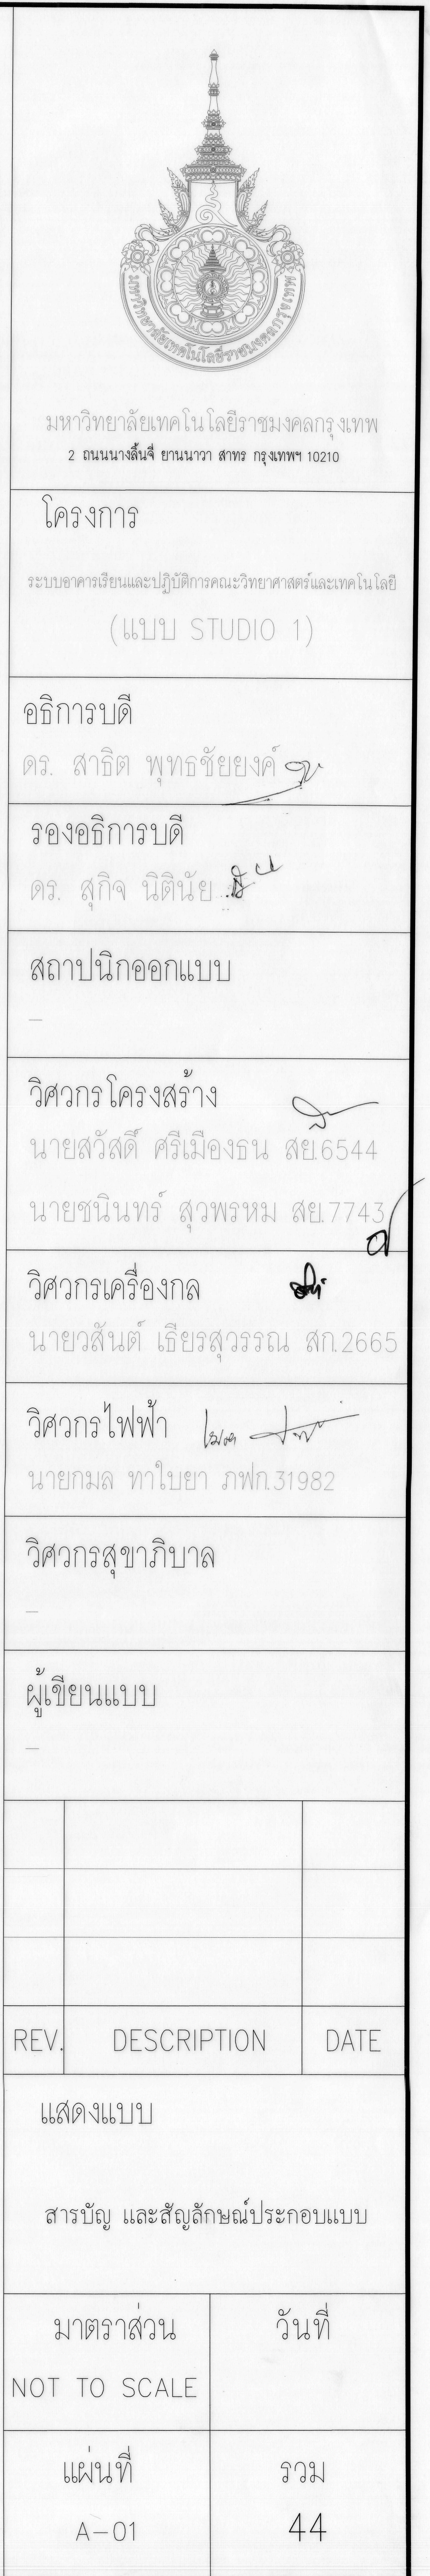 มหาวิทยาลัยเทคโนโลยีราชมงคลกรุงเทพ
มหาวิทยาลัยเทคโนโลยีราชมงคลกรุงเทพ
2 ถนนนางลิ้นจี่ ยานนาวา สาทร กรุงเทพฯ 10210
โครงการ
ระบบอาคารเรียนและปฏิบัติการคณะวิทยาศาสตร์และเทคโนโลยี
(แบบ STUDIO 1)
อธิการบดี
ดร. สาธิต พุทธชัยยงค์
รองอธิการบดี
ดร. สุกิจ นิตินัย
สถาปนิกออกแบบ
–
วิศวกรโครงสร้าง
นายสวัสดิ์ ศรีเมืองธน สย.6544
นายชนินทร์ สุวพรหม สย.7743
วิศวกรเครื่องกล
นายวสันต์ เธียรสุวรรณ สก.2665
วิศวกรไฟฟ้า
นายกมล ทาใบยา ภฟก.31982
วิศวกรสุขาภิบาล
–
ผู้เขียนแบบ
–
REV. DESCRIPTION DATE
แสดงแบบ
สารบัญ และสัญลักษณ์ประกอบแบบ
มาตราส่วน วันที่
NOT TO SCALE
แผ่นที่ รวม
A-01 44